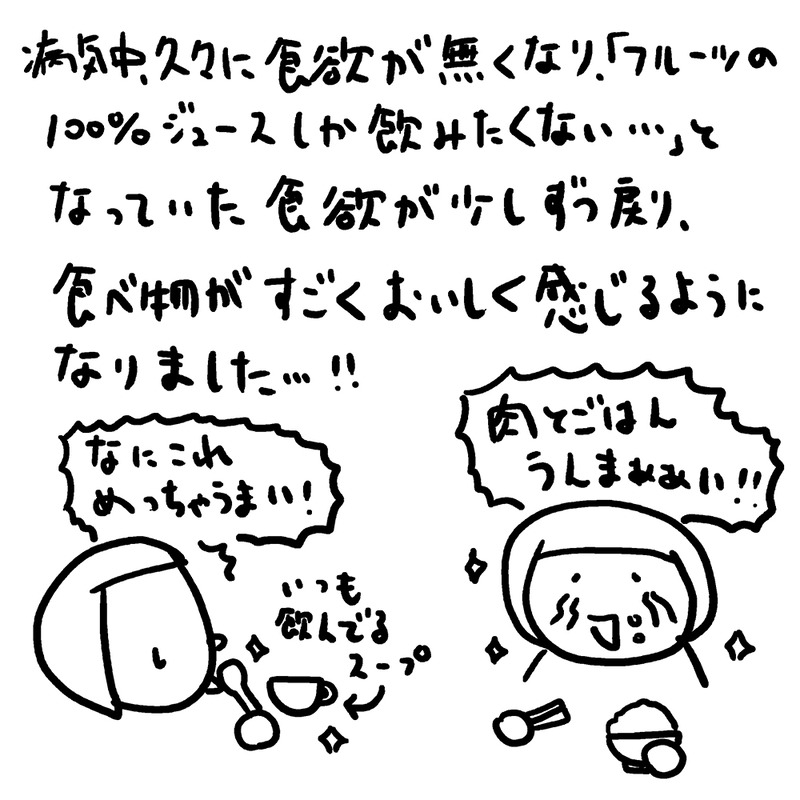 病気中、久々に食欲が無くなり、「フルーツの
100%ジュースしか飲みたくない…」と
なっていた食欲が少しずつ戻り、
食べ物がすごくおいしく感じるように
なりました…!!
なにこれ
めっちゃうまい!
肉とごはん
うんまぁぁい!!
いつも
飲んでる
スープ